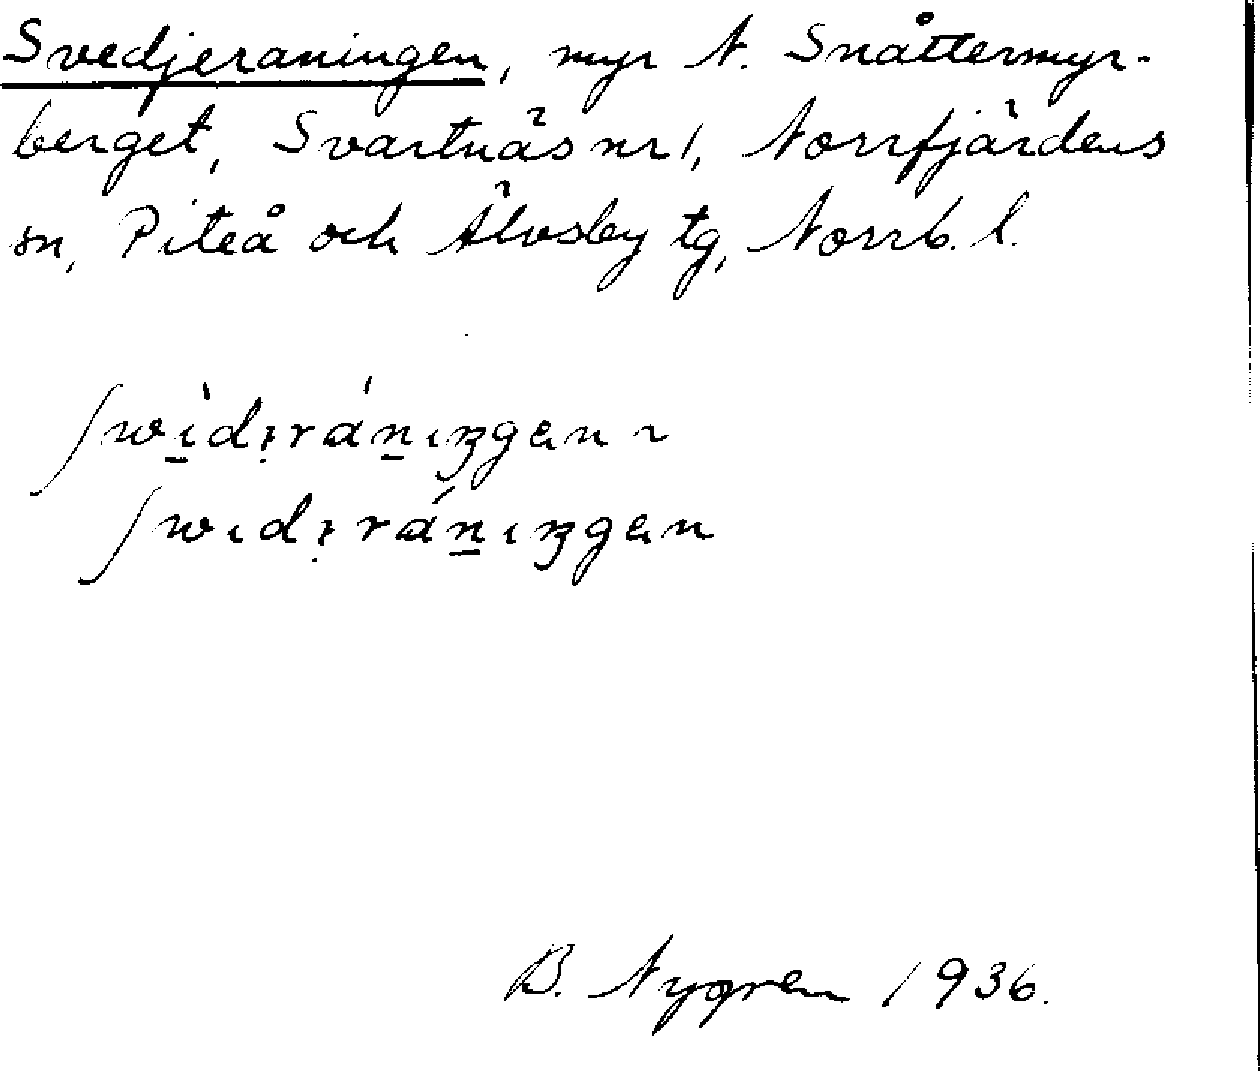 Svedjeraningen, myr N. Snåttermyr-
berget, Svartnäs nr 1, Norrfjärdens
sn, Piteå och Älvsby tg, Norrb. l.
B. Nygren 1936.